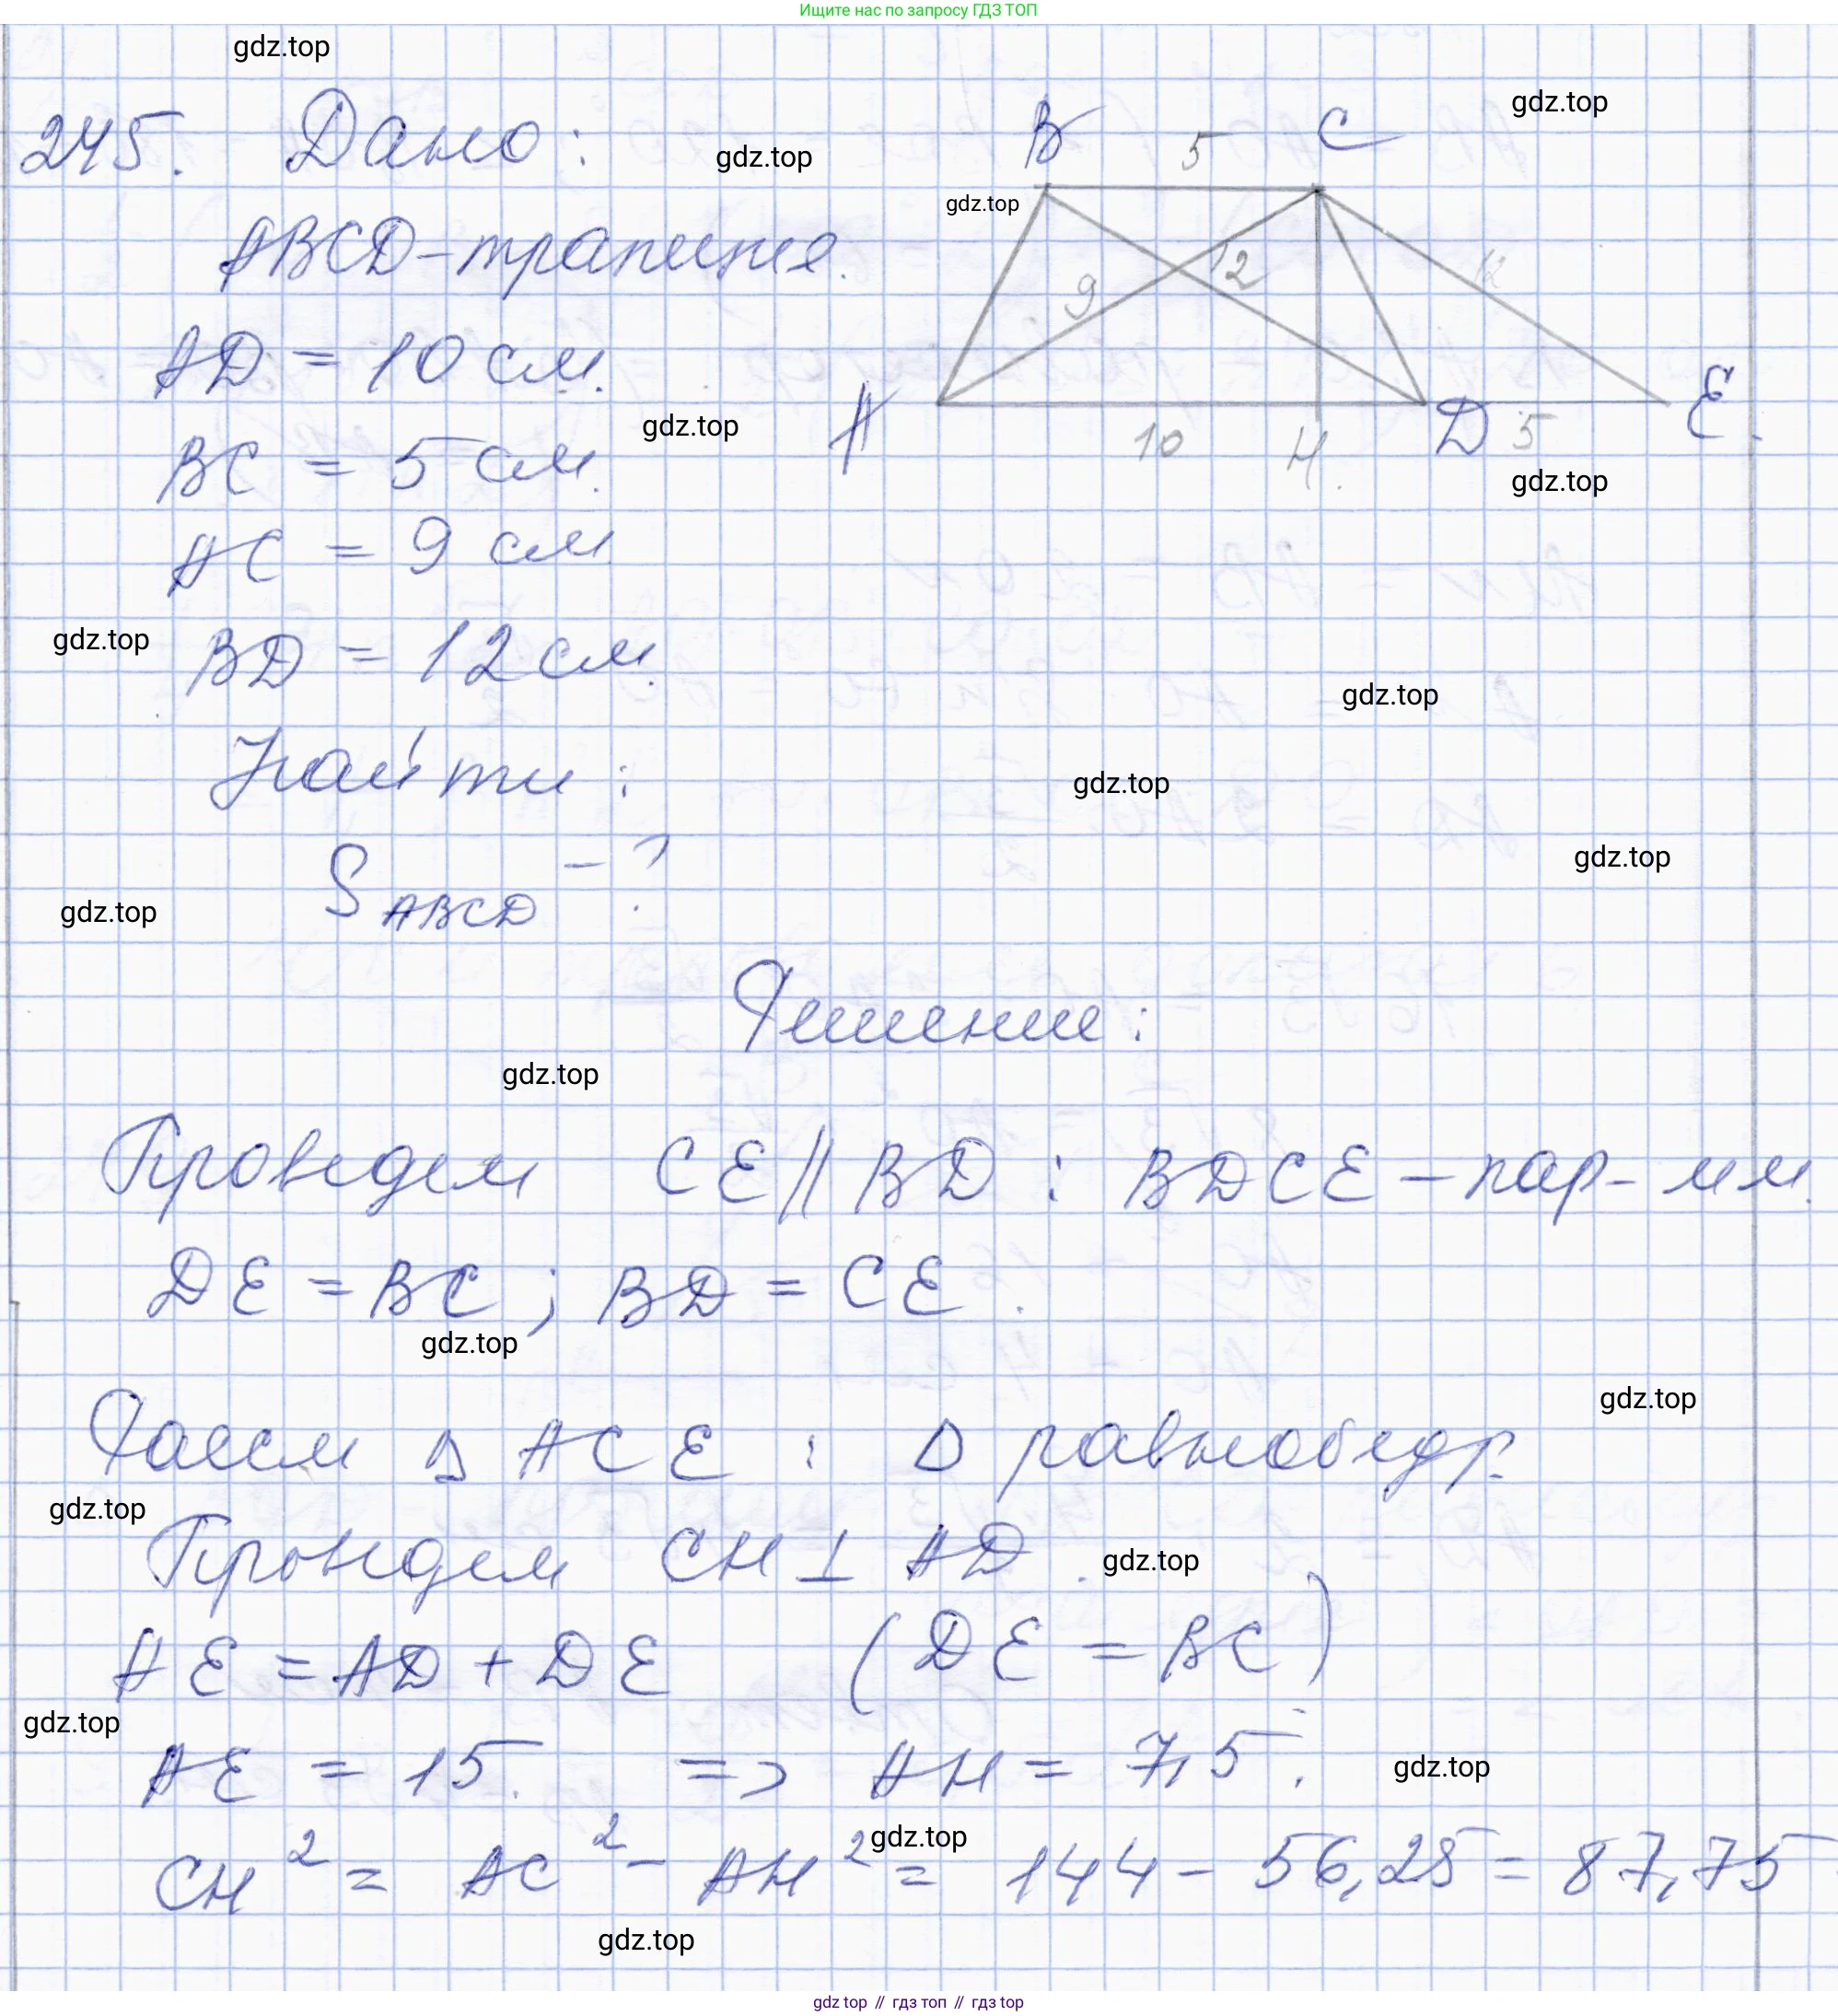 Ищите нас по запросу ГДЗ ТОП
gdz.top
245. Дано:
gdz.top
gdz.top
B 5 C
gdz.top
ABCD - трапеция.
9 12 12
AD = 10 см.
A 10 H. D 5 E.
gdz.top
BC = 5 см.
gdz.top
AC = 9 см
gdz.top
BD = 12 см.
gdz.top
Найти:
gdz.top
gdz.top
S ABCD - ?
gdz.top
Решение:
gdz.top
Проведем CE || BD : BDCE - пар-мм.
DE = BC ; BD = CE.
gdz.top
gdz.top
Рассм Δ ACE : Δ равнобедр.
gdz.top
Проведем CH ⊥ AD.
gdz.top
AE = AD + DE (DE = BC)
gdz.top
AE = 15. => AH = 7,5.
gdz.top
gdz.top
CH² = AC² - AH² = 144 - 56,25 = 87,75
gdz.top
gdz top // гдз топ // гдз top